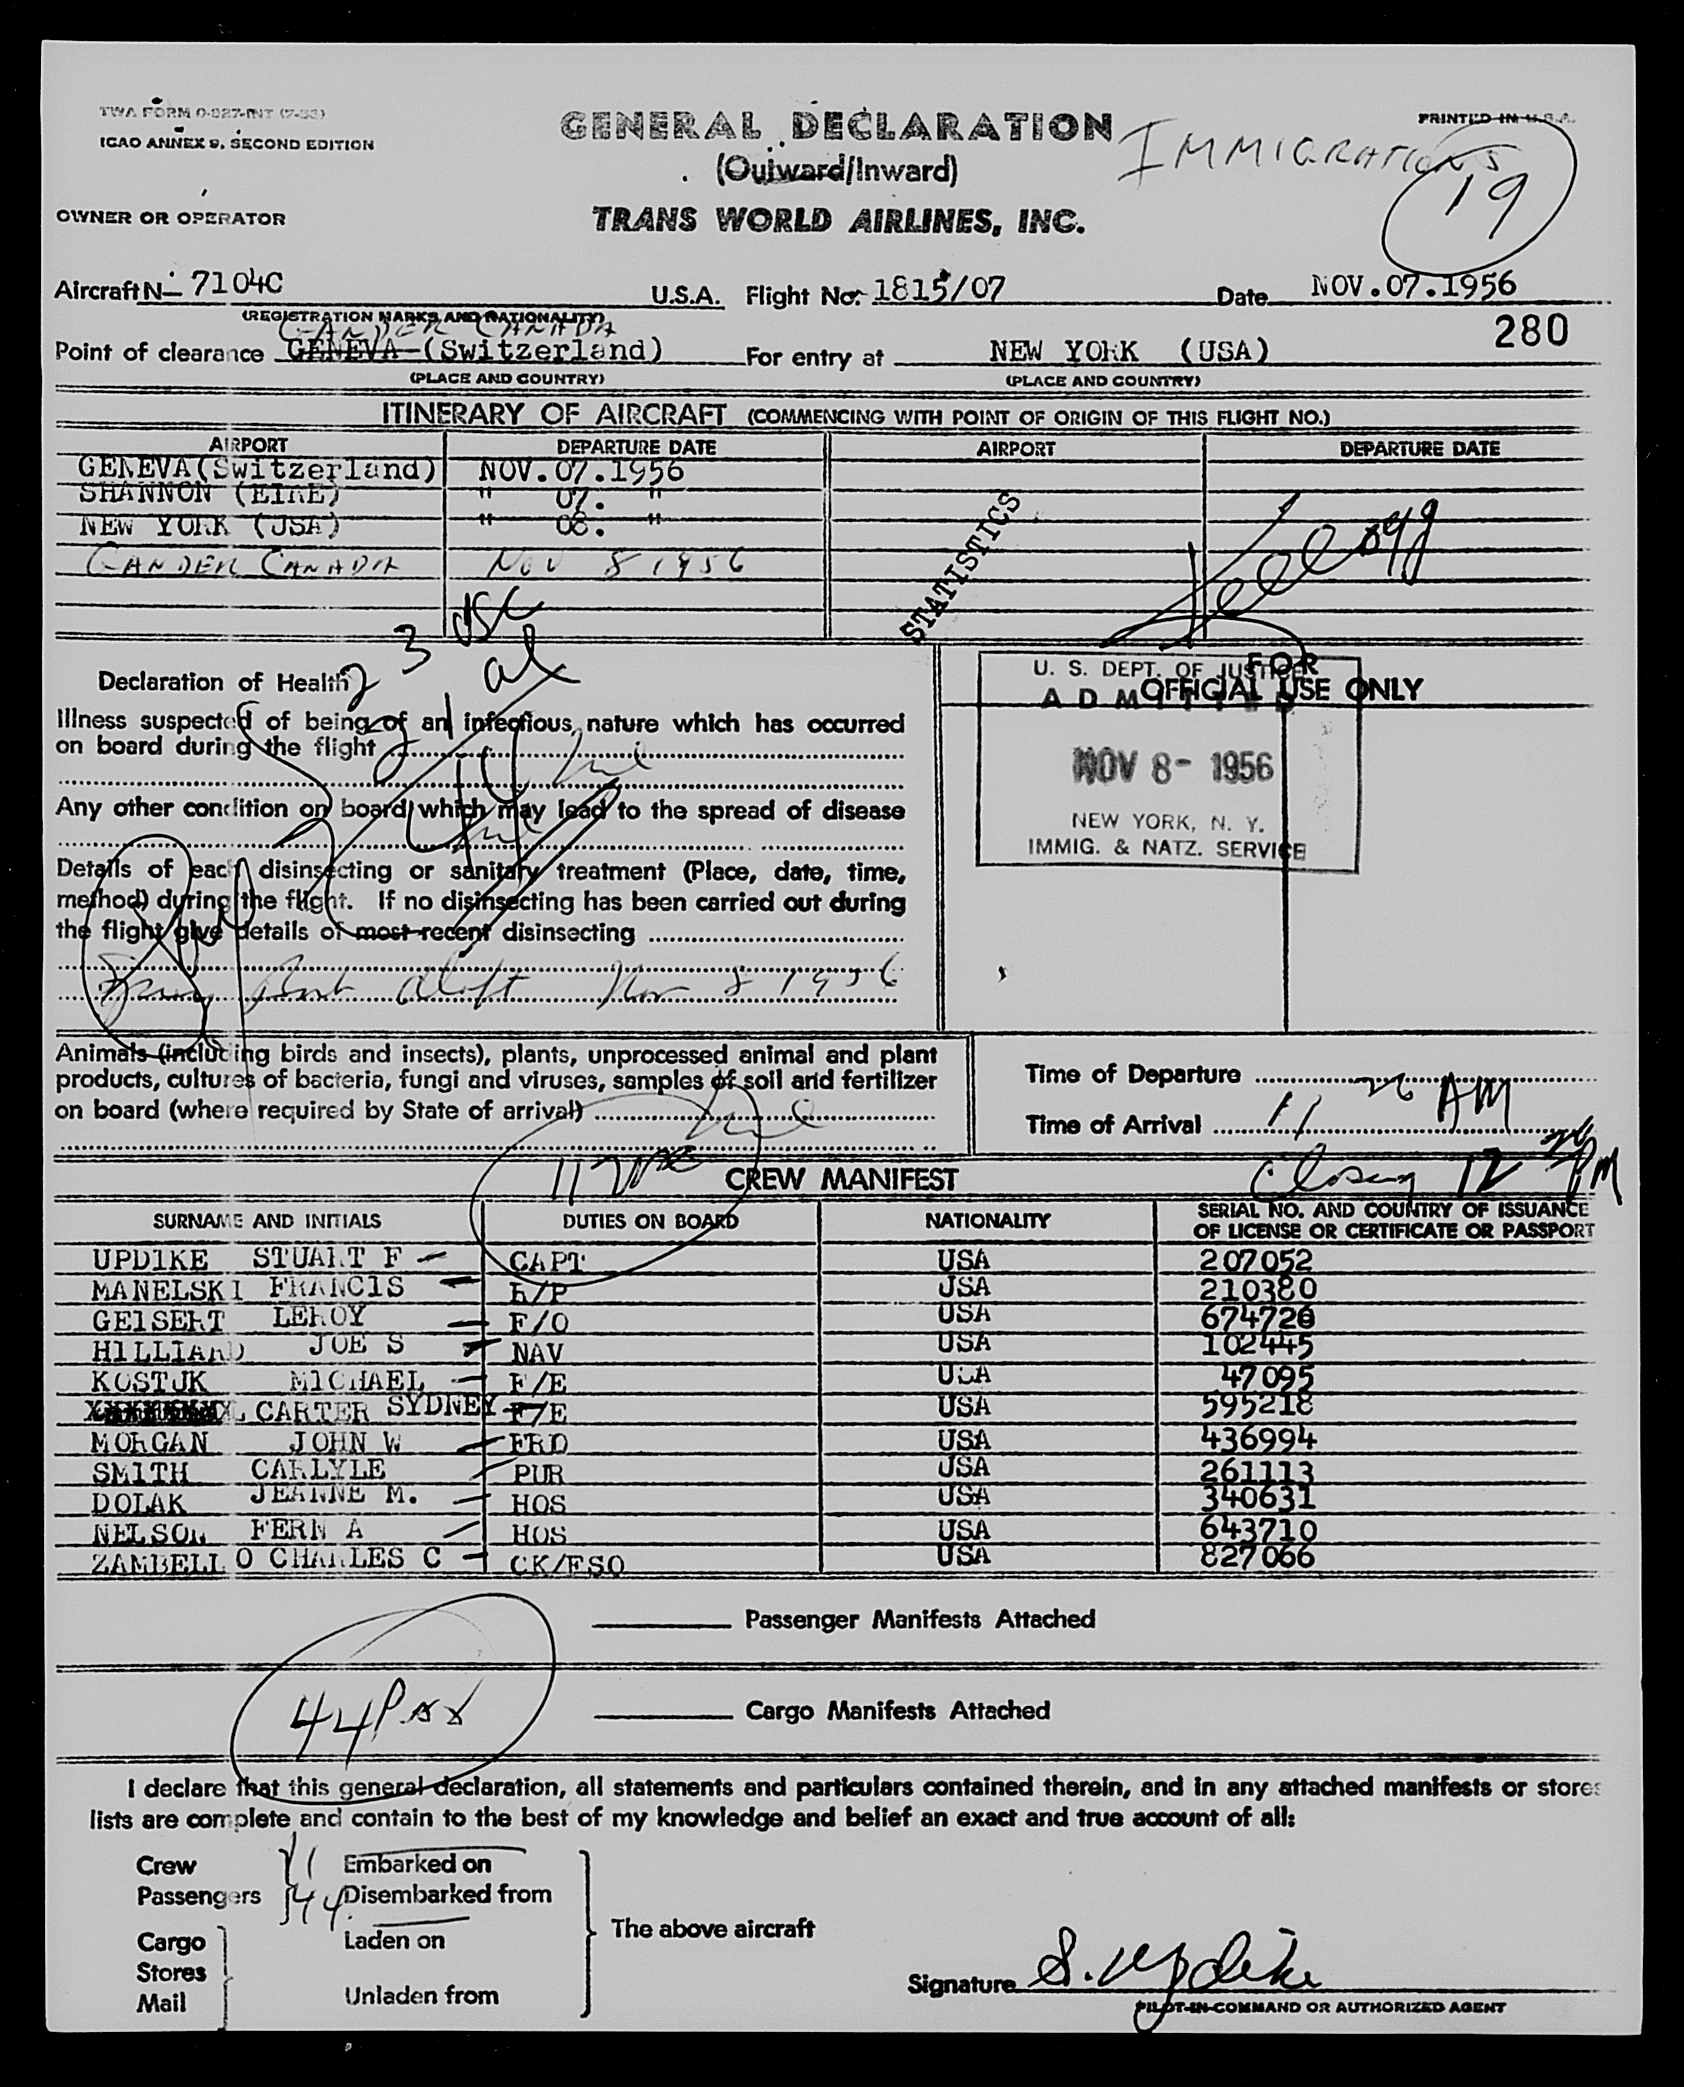 TWA FORM 0-927-INT (7-53)
ICAO ANNEX 9, SECOND EDITION
GENERAL DECLARATION
PRINTED IN U.S.A.
(Outward/Inward)
IMMIGRATIONS
19
OWNER OR OPERATOR
TRANS WORLD AIRLINES, INC.
Aircraft N- 7104C U.S.A. Flight No. 1815/07 Date NOV.07.1956
(REGISTRATION MARKS AND NATIONALITY)
GANDER CANADA
280
Point of clearance GENEVA (Switzerland) For entry at NEW YORK (USA)
(PLACE AND COUNTRY) (PLACE AND COUNTRY)
ITINERARY OF AIRCRAFT (COMMENCING WITH POINT OF ORIGIN OF THIS FLIGHT NO.)
AIRPORT DEPARTURE DATE AIRPORT DEPARTURE DATE
GENEVA(Switzerland) NOV.07.1956
SHANNON (EIRE) " 07. "
NEW YORK (USA) " 08. "
GANDER CANADA Nov 8 1956
STATISTICS
23 USC
al
Declaration of Health
FOR
OFFICIAL USE ONLY
U. S. DEPT. OF JUSTICE
ADMITTED
NOV 8- 1956
NEW YORK, N. Y.
IMMIG. & NATZ. SERVICE
Illness suspected of being of an infectious nature which has occurred
on board during the flight nil
Any other condition on board which may lead to the spread of disease
nil
Details of each disinsecting or sanitary treatment (Place, date, time,
method) during the flight. If no disinsecting has been carried out during
the flight give details of most recent disinsecting
Aloft Nov 8 1956
Animals (including birds and insects), plants, unprocessed animal and plant
products, cultures of bacteria, fungi and viruses, samples of soil and fertilizer
on board (where required by State of arrival) nil
Time of Departure
Time of Arrival 11 26 AM
CREW MANIFEST
Closing 12 PM
SURNAME AND INITIALS DUTIES ON BOARD NATIONALITY SERIAL NO. AND COUNTRY OF ISSUANCE
OF LICENSE OR CERTIFICATE OR PASSPORT
UPDIKE STUART F CAPT USA 207052
MANELSKI FRANCIS R/P USA 210380
GEISERT LEROY F/O USA 674726
HILLIARD JOE S NAV USA 102445
KOSTUK MICHAEL F/E USA 47095
CARTER SYDNEY F/E USA 595218
MORGAN JOHN W FRD USA 436994
SMITH CARLYLE PUR USA 261113
DOLAK JEANNE M. HOS USA 340631
NELSON FERN A HOS USA 643710
ZAMBELLO CHARLES C CK/FSO USA 827066
Passenger Manifests Attached
44 Pax
Cargo Manifests Attached
I declare that this general declaration, all statements and particulars contained therein, and in any attached manifests or stores
lists are complete and contain to the best of my knowledge and belief an exact and true account of all:
Crew 11 Embarked on
Passengers 44 Disembarked from
The above aircraft
Cargo Laden on
Stores
Mail Unladen from
Signature S. Updike
PILOT-IN-COMMAND OR AUTHORIZED AGENT